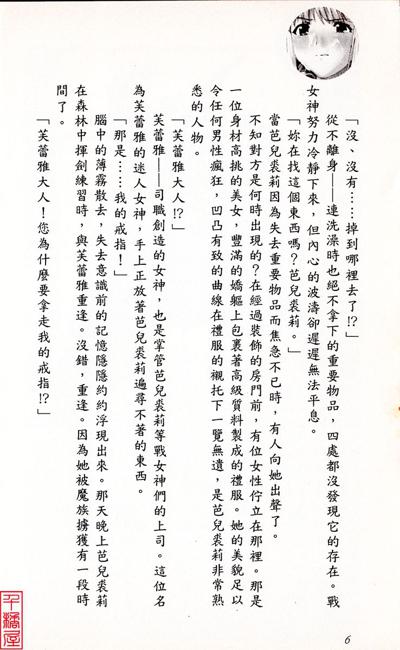 「沒、沒有……掉到哪裡去了!?」
從不離身——連洗澡時也絕不拿下的重要物品,四處都沒發現它的存在。戰
女神努力冷靜下來,但內心的波濤卻遲遲無法平息。
「妳在找這個東西嗎?芭兒裘莉。」
當芭兒裘莉因為失去重要物品而焦急不已時,有人向她出聲了。
不知對方是何時出現的?在經過裝飾的房門前,有位女性佇立在那裡。那是
一位身材高挑的美女,豐滿的嬌軀上包裹著高級質料製成的禮服。她的美貌足以
令任何男性瘋狂,凹凸有致的曲線在禮服的襯托下一覽無遺,是芭兒裘莉非常熟
悉的人物。
「芙蕾雅大人!?」
芙蕾雅——司職創造的女神,也是掌管芭兒裘莉等戰女神們的上司。這位名
為芙蕾雅的迷人女神,手上正放著芭兒裘莉遍尋不著的東西。
「那是……我的戒指!」
腦中的薄霧散去,失去意識前的記憶隱隱約約浮現出來。那天晚上芭兒裘莉
在森林中揮劍練習時,與芙蕾雅重逢。沒錯,重逢。因為她被魔族擄獲有一段時
間了。
「芙蕾雅大人!您為什麼要拿走我的戒指!?」
6
千橘屋